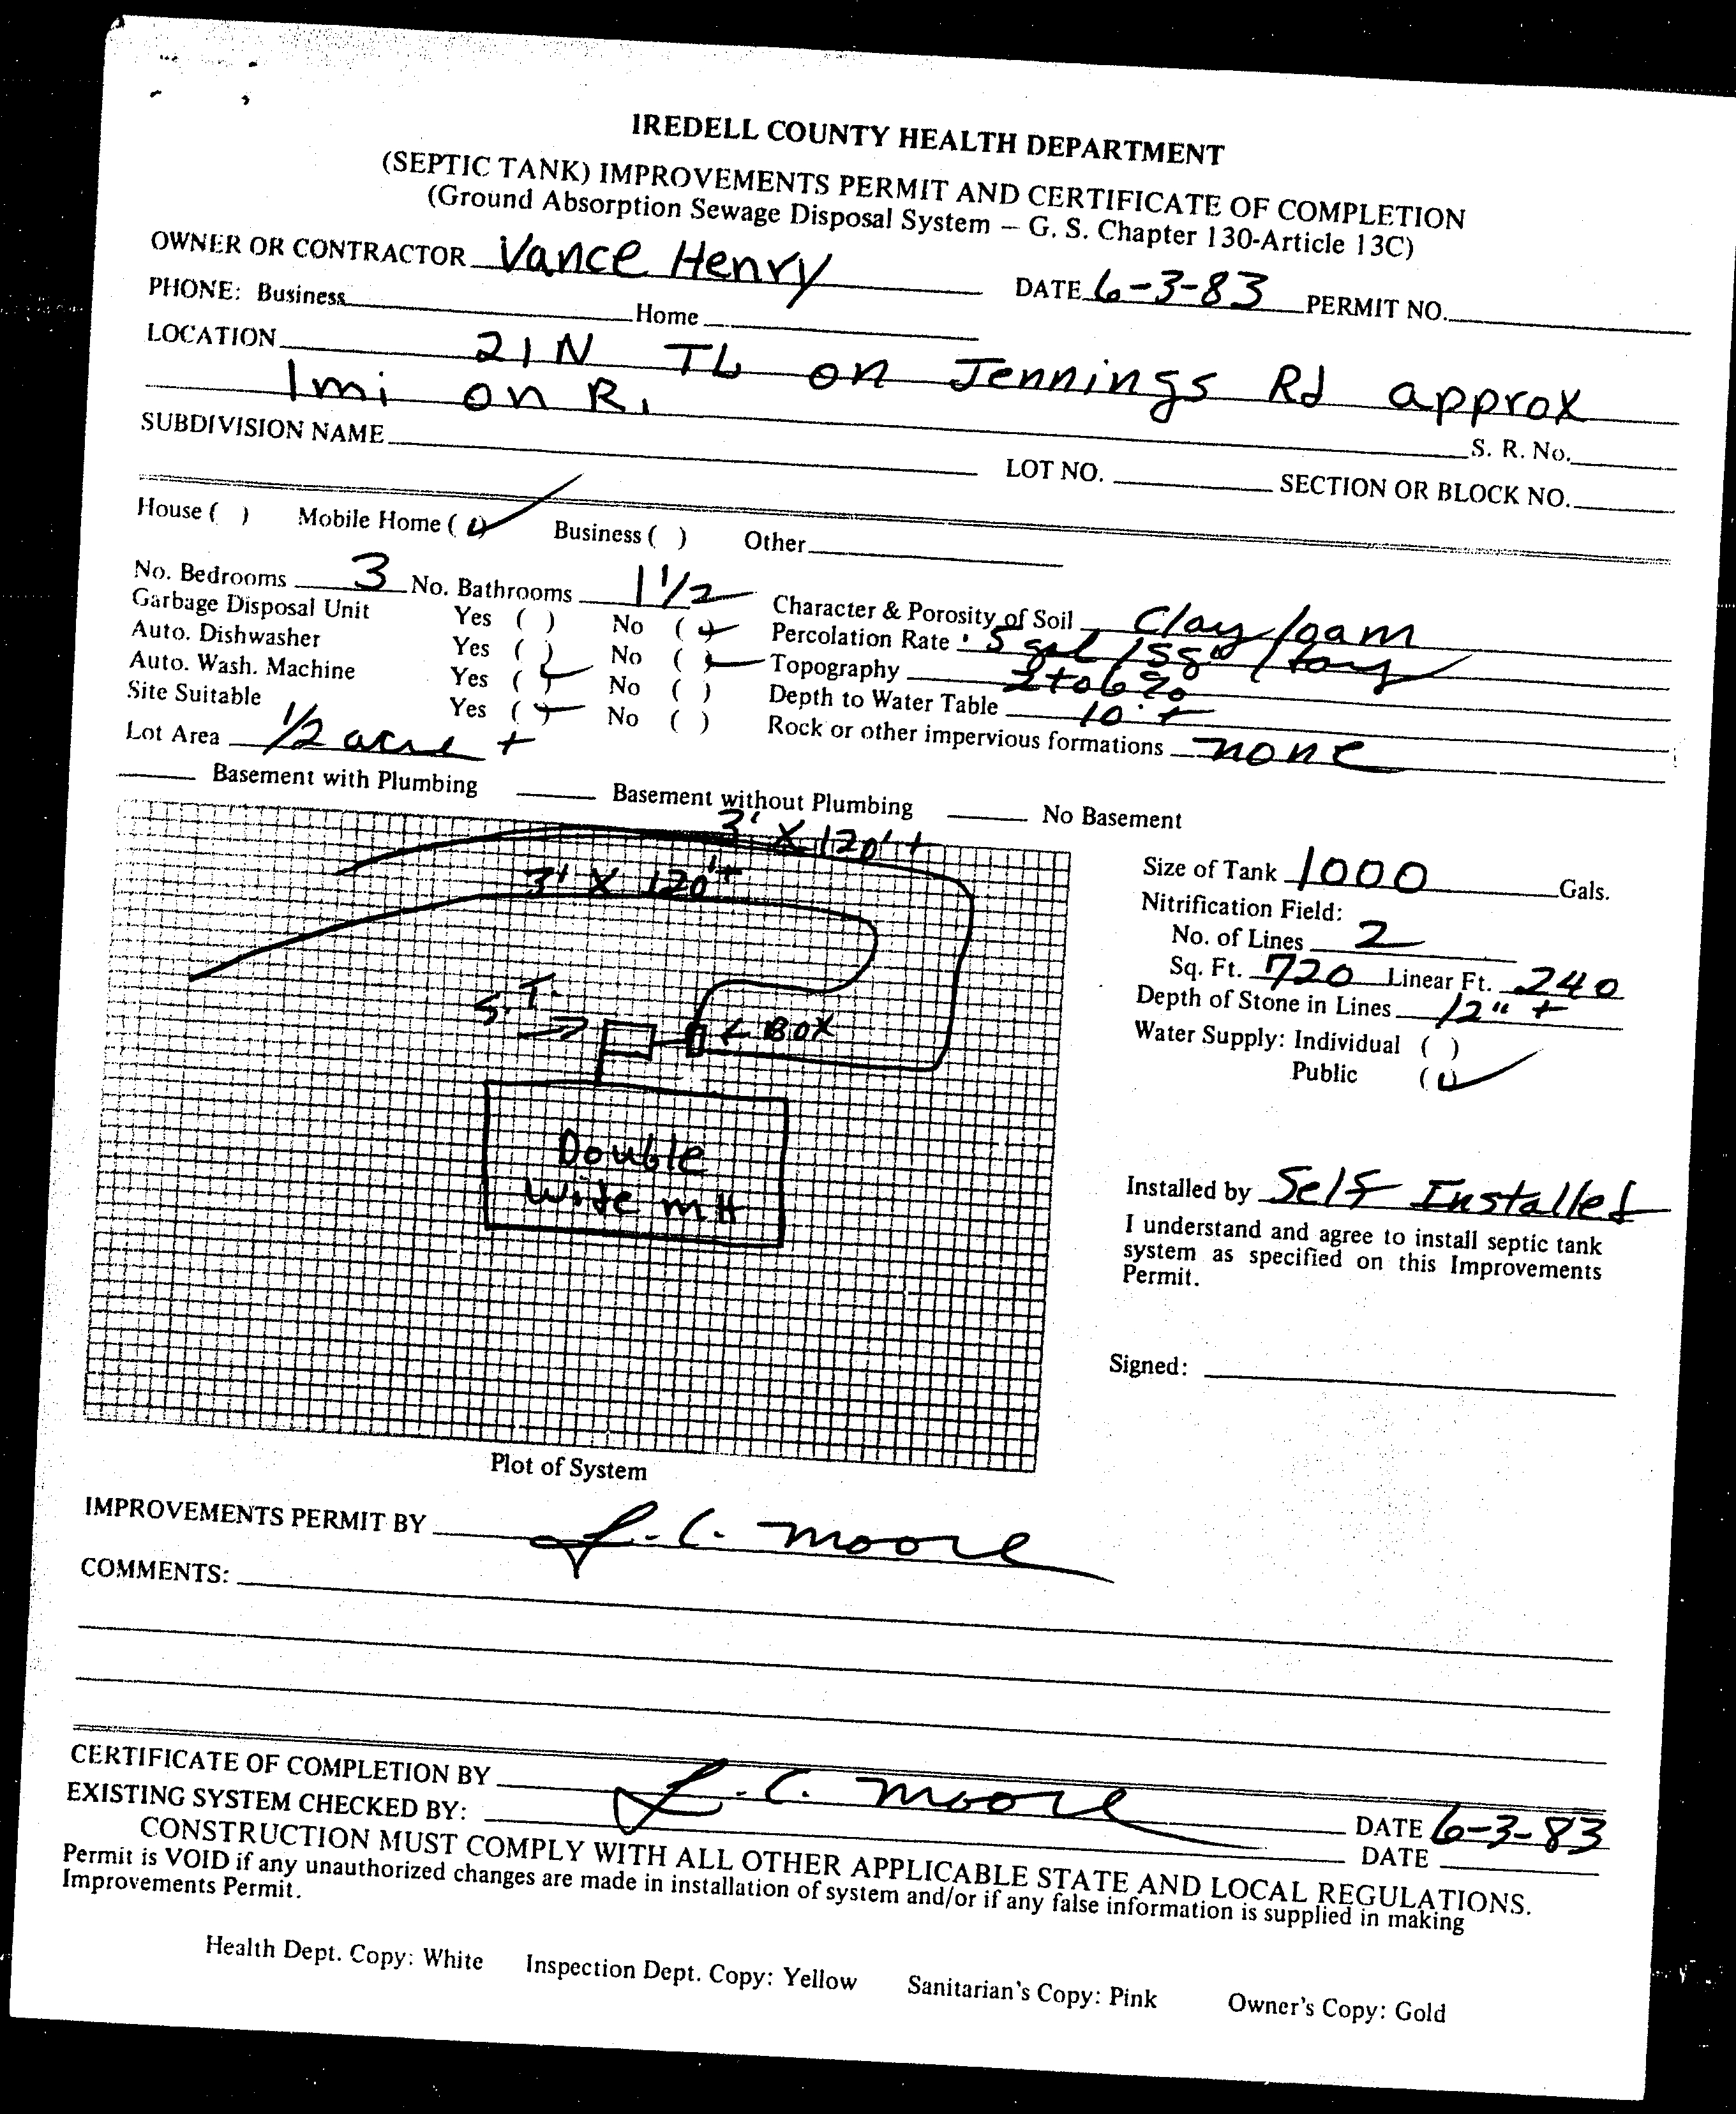 IREDELL COUNTY HEALTH DEPARTMENT
(SEPTIC TANK) IMPROVEMENTS PERMIT AND CERTIFICATE OF COMPLETION
(Ground Absorption Sewage Disposal System – G. S. Chapter 130-Article 13C)
OWNER OR CONTRACTOR Vance Henry DATE 6-3-83 PERMIT NO.
PHONE: Business Home
LOCATION 21 N TL on Jennings Rd approx
1 mi on R. S. R. No.
SUBDIVISION NAME LOT NO. SECTION OR BLOCK NO.
House ( ) Mobile Home (✓) Business ( ) Other
No. Bedrooms 3 No. Bathrooms 1 1/2 Character & Porosity of Soil Clay loam
Garbage Disposal Unit Yes ( ) No (✓) Percolation Rate .5 gal / sq / day
Auto. Dishwasher Yes ( ) No (✓) Topography 2 to 6 %
Auto. Wash. Machine Yes (✓) No ( ) Depth to Water Table 10' +
Site Suitable Yes (✓) No ( ) Rock or other impervious formations none
Lot Area 1/2 acre +
Basement with Plumbing Basement without Plumbing No Basement
3' X 120' +
3' X 120' +
S.T.
← BOX
Double
Wide MH
Plot of System
Size of Tank 1000 Gals.
Nitrification Field:
No. of Lines 2
Sq. Ft. 720 Linear Ft. 240
Depth of Stone in Lines 12" +
Water Supply: Individual ( )
Public (✓)
Installed by Self Installed
I understand and agree to install septic tank
system as specified on this Improvements
Permit.
Signed:
IMPROVEMENTS PERMIT BY L. C. Moore
COMMENTS:
CERTIFICATE OF COMPLETION BY L. C. Moore DATE 6-3-83
EXISTING SYSTEM CHECKED BY: DATE
CONSTRUCTION MUST COMPLY WITH ALL OTHER APPLICABLE STATE AND LOCAL REGULATIONS.
Permit is VOID if any unauthorized changes are made in installation of system and/or if any false information is supplied in making
Improvements Permit.
Health Dept. Copy: White Inspection Dept. Copy: Yellow Sanitarian's Copy: Pink Owner's Copy: Gold